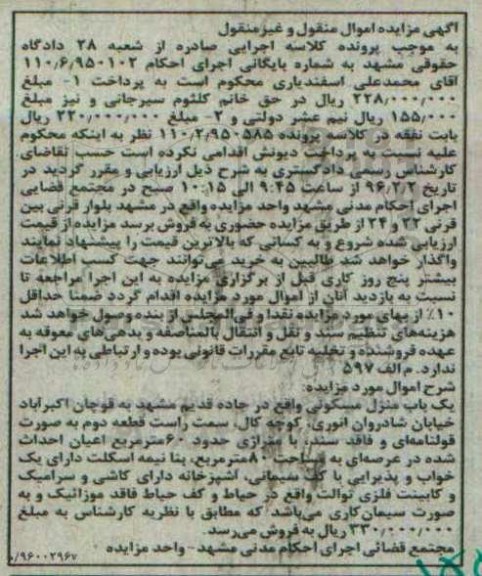 آگهی مزایده اموال منقول و غیرمنقول
به موجب پرونده کلاسه اجرایی صادره از شعبه ۲۸ دادگاه
حقوقی مشهد به شماره بایگانی اجرای احکام ۱۱۰٫۶٫۹۵۰۱۰۲
آقای محمدعلی اسفندیاری محکوم است به پرداخت ۱- مبلغ
۲۲۸٫۰۰۰٫۰۰۰ ریال در حق خانم کلثوم سیرجانی و نیز مبلغ
۱۵۵٫۰۰۰ ریال نیم عشر دولتی و ۲- مبلغ ۲۲۰٫۰۰۰٫۰۰۰ ریال
بابت نفقه در کلاسه پرونده ۱۱۰٫۲٫۹۵۰۵۸۵ نظر به اینکه محکوم
علیه نسبت به پرداخت دیونش اقدامی نکرده است حسب تقاضای
کارشناس رسمی دادگستری به شرح ذیل ارزیابی و مقرر گردید در
تاریخ ۹۶٫۲٫۲ از ساعت ۹:۴۵ الی ۱۰:۱۵ صبح در مجتمع قضایی
اجرای احکام مدنی مشهد واحد مزایده واقع در مشهد بلوار قرنی بین
قرنی ۲۲ و ۲۴ از طریق مزایده حضوری به فروش برسد مزایده از قیمت
ارزیابی شده شروع و به کسانی که بالاترین قیمت را پیشنهاد نمایند
واگذار خواهد شد طالبین به خرید می‌توانند جهت کسب اطلاعات
بیشتر پنج روز کاری قبل از برگزاری مزایده به این اجرا مراجعه تا
نسبت به بازدید آنان از اموال مورد مزایده اقدام گردد ضمنا حداقل
۱۰٪ از بهای مورد مزایده نقدا و فی‌المجلس از برنده وصول خواهد شد
هزینه‌های تنظیم سند و نقل و انتقال بالمناصفه و بدهی‌های معوقه به
عهده فروشنده و تخلیه تابع مقررات قانونی بوده و ارتباطی به این اجرا
ندارد. م الف ۵۹۷
شرح اموال مورد مزایده:
یک باب منزل مسکونی واقع در جاده قدیم مشهد به قوچان اکبرآباد
خیابان شادروان انوری، کوچه کال، سمت راست قطعه دوم به صورت
قولنامه‌ای و فاقد سند، با متراژی حدود ۶۰مترمربع اعیان احداث
شده در عرصه‌ای به مساحت ۸۰مترمربع، بنا نیمه اسکلت دارای یک
خواب و پذیرایی با کف سیمانی، آشپزخانه دارای کاشی و سرامیک
و کابینت فلزی توالت واقع در حیاط و کف حیاط فاقد موزائیک و به
صورت سیمان کاری می‌باشد که مطابق با نظریه کارشناس به مبلغ
۳۳۰٫۰۰۰٫۰۰۰ ریال به فروش می‌رسد.
مجتمع قضائی اجرای احکام مدنی مشهد- واحد مزایده
/۹۶۰۰۲۹۶۷